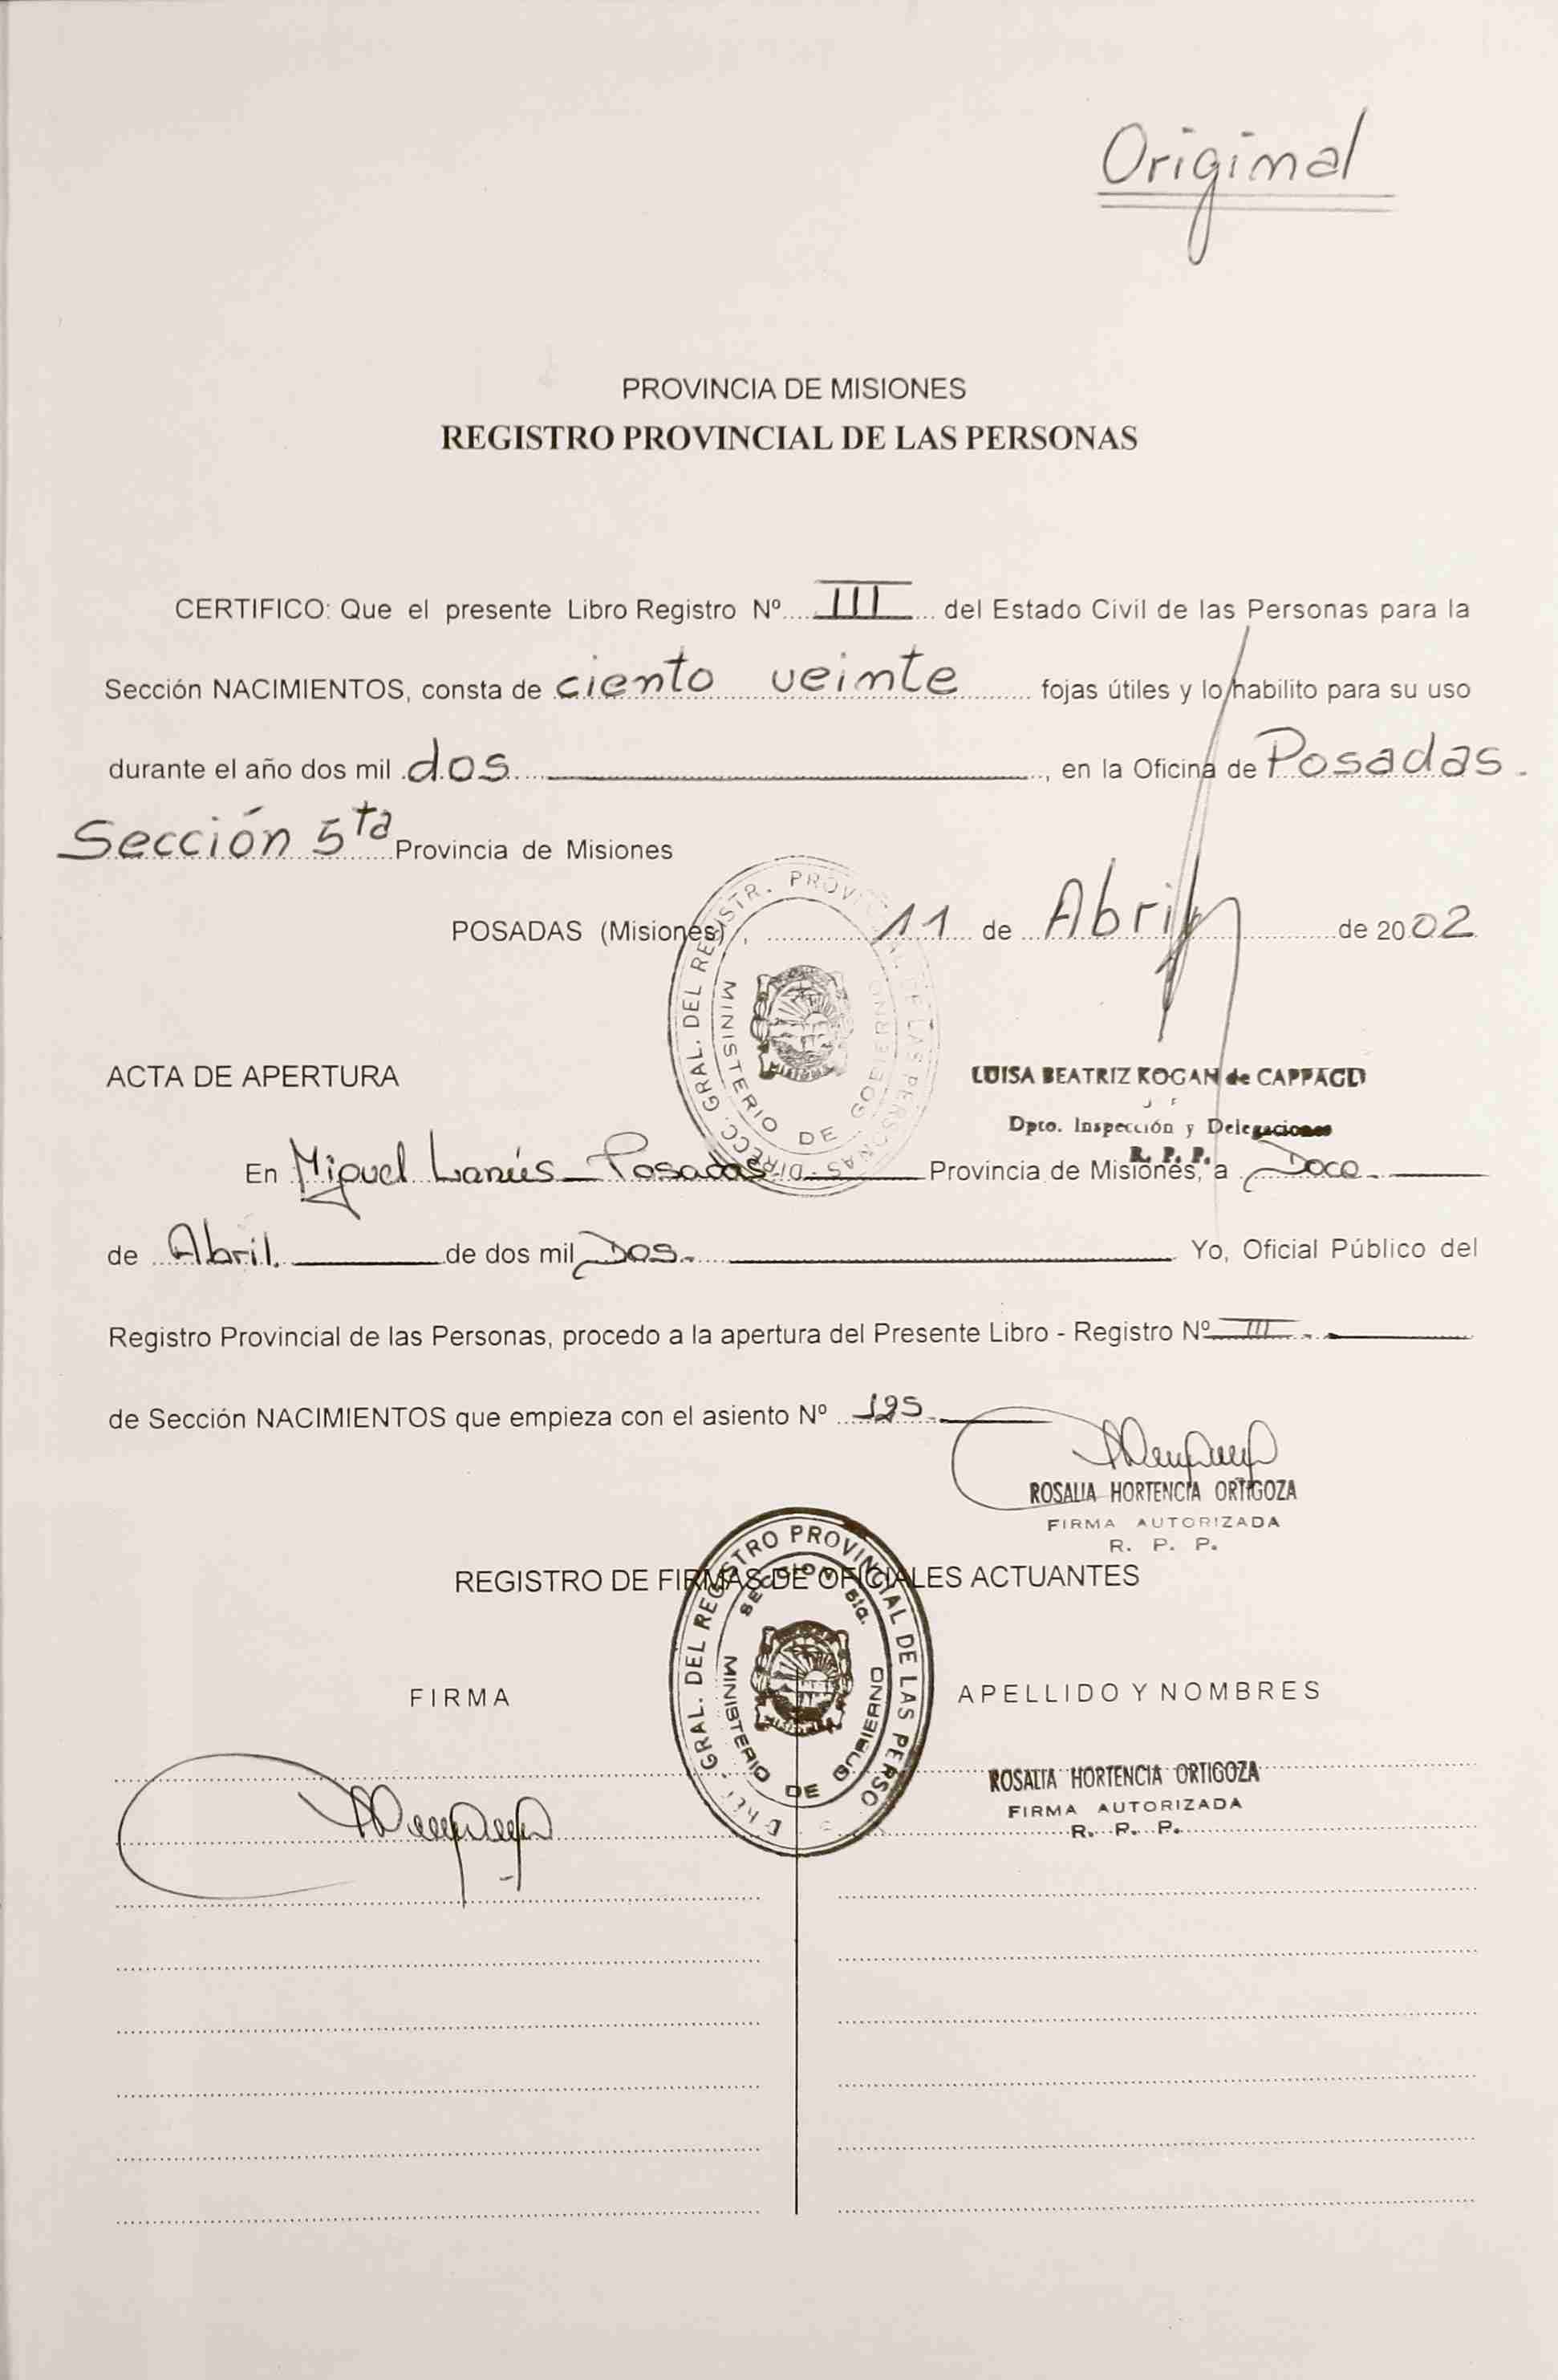 Original
PROVINCIA DE MISIONES
REGISTRO PROVINCIAL DE LAS PERSONAS
CERTIFICO: Que el presente Libro Registro Nº III del Estado Civil de las Personas para la
Sección NACIMIENTOS, consta de ciento veinte fojas útiles y lo habilito para su uso
durante el año dos mil dos, en la Oficina de Posadas.
Sección 5ta Provincia de Misiones
POSADAS (Misiones), 11 de Abril de 2002
DIRECC. GRAL. DEL REGISTR. PROVINCIAL DE LAS PERSONAS
MINISTERIO DE GOBIERNO
LUISA BEATRIZ KOGAN de
Dpto. Inspección y Delegaciones
R. P. P.
ACTA DE APERTURA
En Miguel Lanús - Posadas Provincia de Misiones, a Doce
de Abril. de dos mil Dos. Yo, Oficial Público del
Registro Provincial de las Personas, procedo a la apertura del Presente Libro - Registro Nº III
de Sección NACIMIENTOS que empieza con el asiento Nº 195
ROSALIA HORTENCIA ORTIGOZA
FIRMA AUTORIZADA
R. P. P.
REGISTRO DE FIRMAS DE OFICIALES ACTUANTES
GRAL. DEL REGISTRO PROVINCIAL DE LAS PERSO
SECCION 5ta.
MINISTERIO DE GOBIERNO
FIRMA APELLIDO Y NOMBRES
ROSALIA HORTENCIA ORTIGOZA
FIRMA AUTORIZADA
R. P. P.